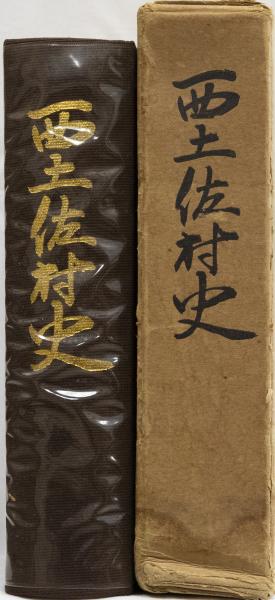 西土佐村史
西土佐村史